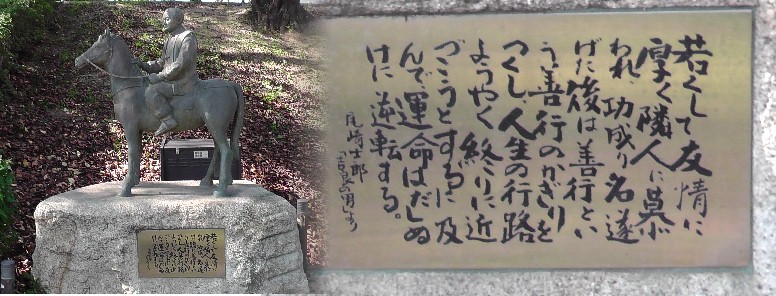 若くして友情に
厚く隣人に慕
われ、功成り名遂
げた後は善行とい
う善行のかぎりを
つくし、人生の行路
ようやく終りに近
づこうとするに及
んで、運命はだしぬ
けに逆転する。
尾崎士郎